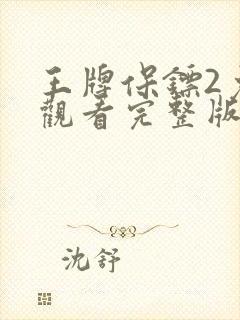 王牌保鏢2
觀看完整版
沈舒